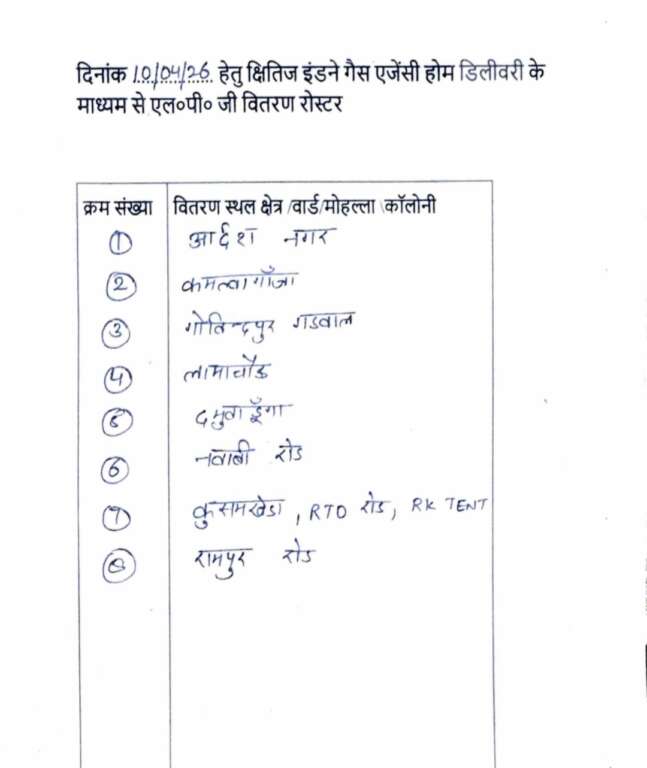 दिनांक 10/04/26 हेतु क्षितिज इंडने गैस एजेंसी होम डिलीवरी के
माध्यम से एल०पी० जी वितरण रोस्टर
क्रम संख्या वितरण स्थल क्षेत्र /वार्ड/मोहल्ला \कॉलोनी
1 आर्दश नगर
2 कमलुवागाँजा
3 गोविन्दपुर गडवाल
4 लामाचौड
5 दमुवाढूँगा
6 नवाबी रोड
7 कुसमखेडा, RTO रोड, RK TENT
8 रामपुर रोड